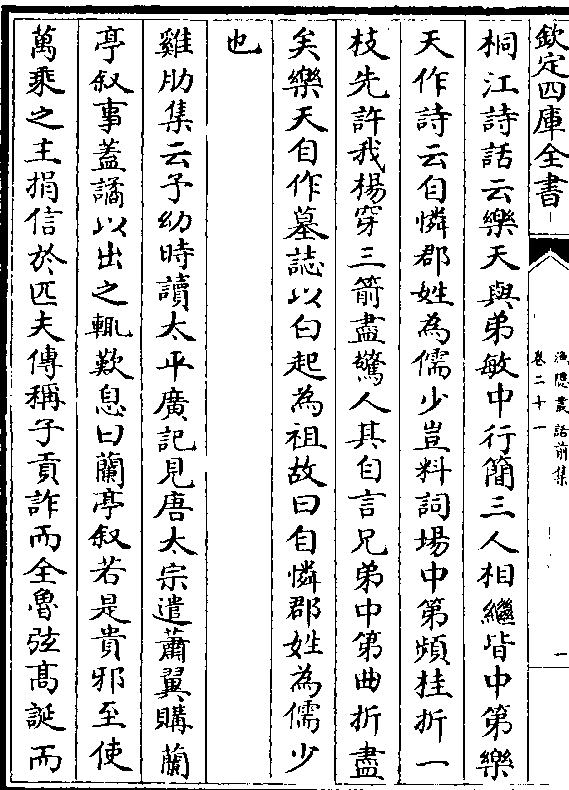 欽定四庫全書
漁隱叢話前集
卷二十一
一
桐江詩話云樂天與弟敏中行簡三人相繼皆中第樂
天作詩云自憐郡姓為儒少豈料詞場中第頻桂折一
枝先許我楊穿三箭盡驚人其自言兄弟中第曲折盡
矣樂天自作墓誌以白起為祖故曰自憐郡姓為儒少
也
雞肋集云予幼時讀太平廣記見唐太宗遣蕭翼購蘭
亭叙事蓋譎以出之輒歎息曰蘭亭叙若是貴邪至使
萬乘之主捐信於匹夫傳稱子貢詐而全魯弦髙誕而